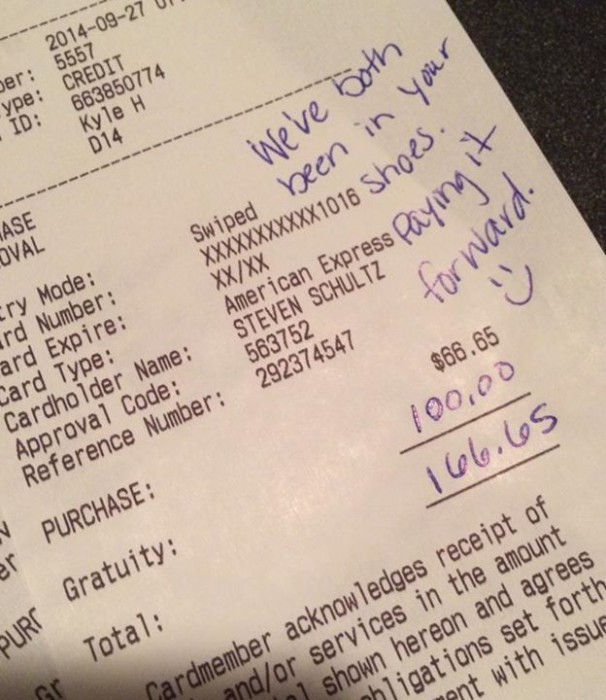 2014-09-27
5557
CREDIT
663850774
Kyle H
D14
We've both
been in your
shoes.
Paying it
forward.
Entry Mode: Swiped
Card Number: XXXXXXXXXXX1016
Card Expire: XX/XX
Card Type: American Express
Cardholder Name: STEVEN SCHULTZ
Approval Code: 563752
Reference Number: 292374547
PURCHASE: $66.65
Gratuity: 100.00
Total: 166.65
Cardmember acknowledges receipt of
and/or services in the amount
shown hereon and agrees
obligations set forth
with